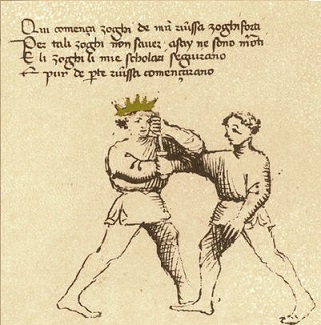 Qui comença zoghi de mã riversa zoghi forti
Per tali zoghi non saver, asay ne sono morti
E li zoghi li mie scholari seguirano
E pur de parte riversa començarano